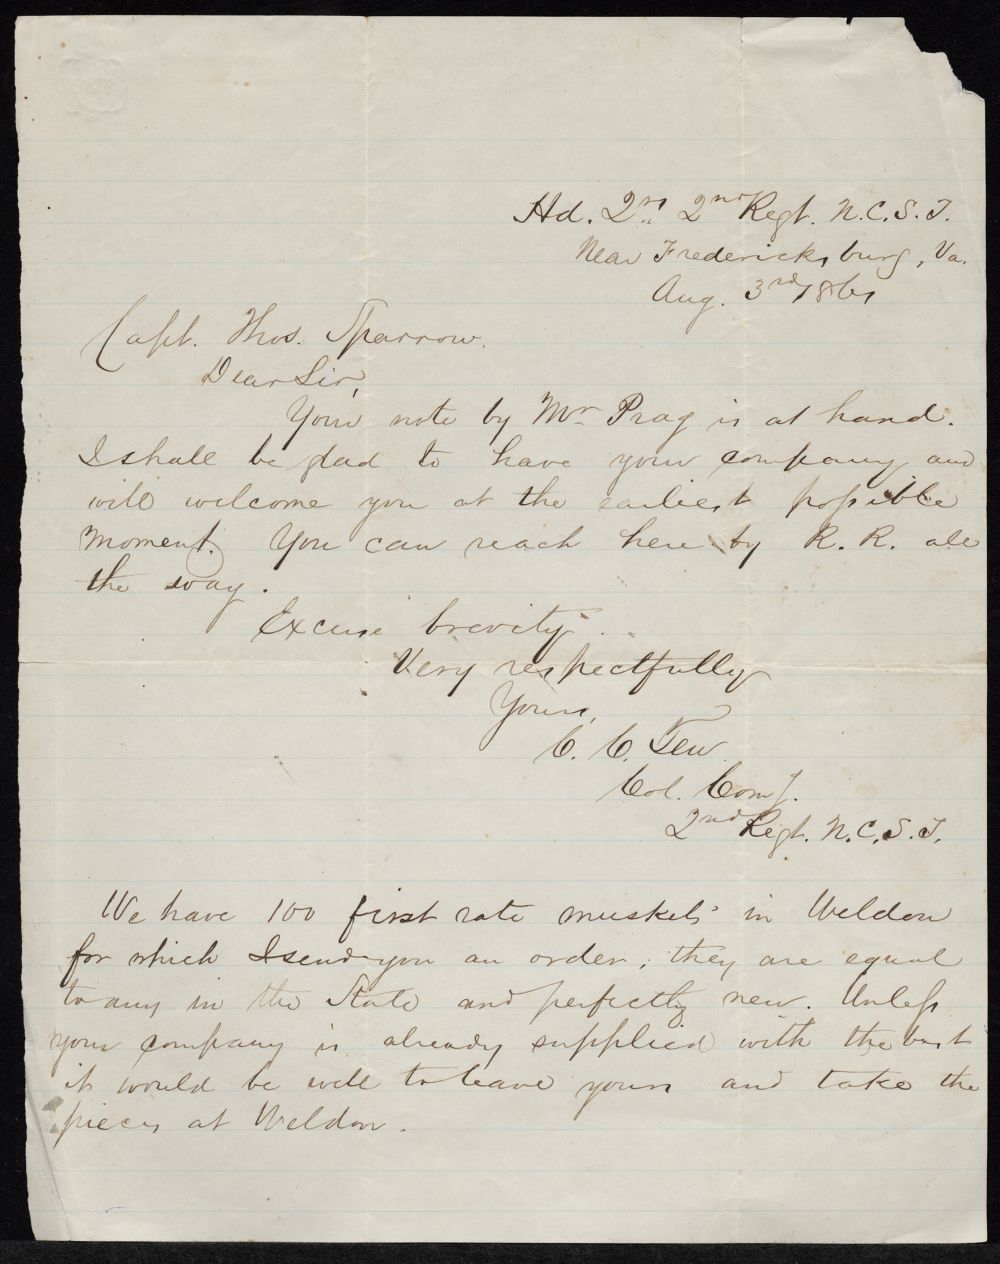 Hd. Qrs. 2nd Regt. N.C.S.T.
Near Fredericksburg, Va.
Aug. 3rd 1861
Capt. Thos. Sparrow.
Dear Sir,
Your note by Mr Prag is at hand.
I shall be glad to have your company and
will welcome you at the earliest possible
moment. You can reach here by R. R. all
the way.
Excuse brevity.
Very respectfully
Yours,
C. C. Tew
Col. Comg.
2nd Regt. N.C.S.T.
We have 100 first rate muskets in Weldon
for which I send you an order; they are equal
to any in the State and perfectly new. Unless
your company is already supplied with the best
it would be well to leave yours and take the
pieces at Weldon.